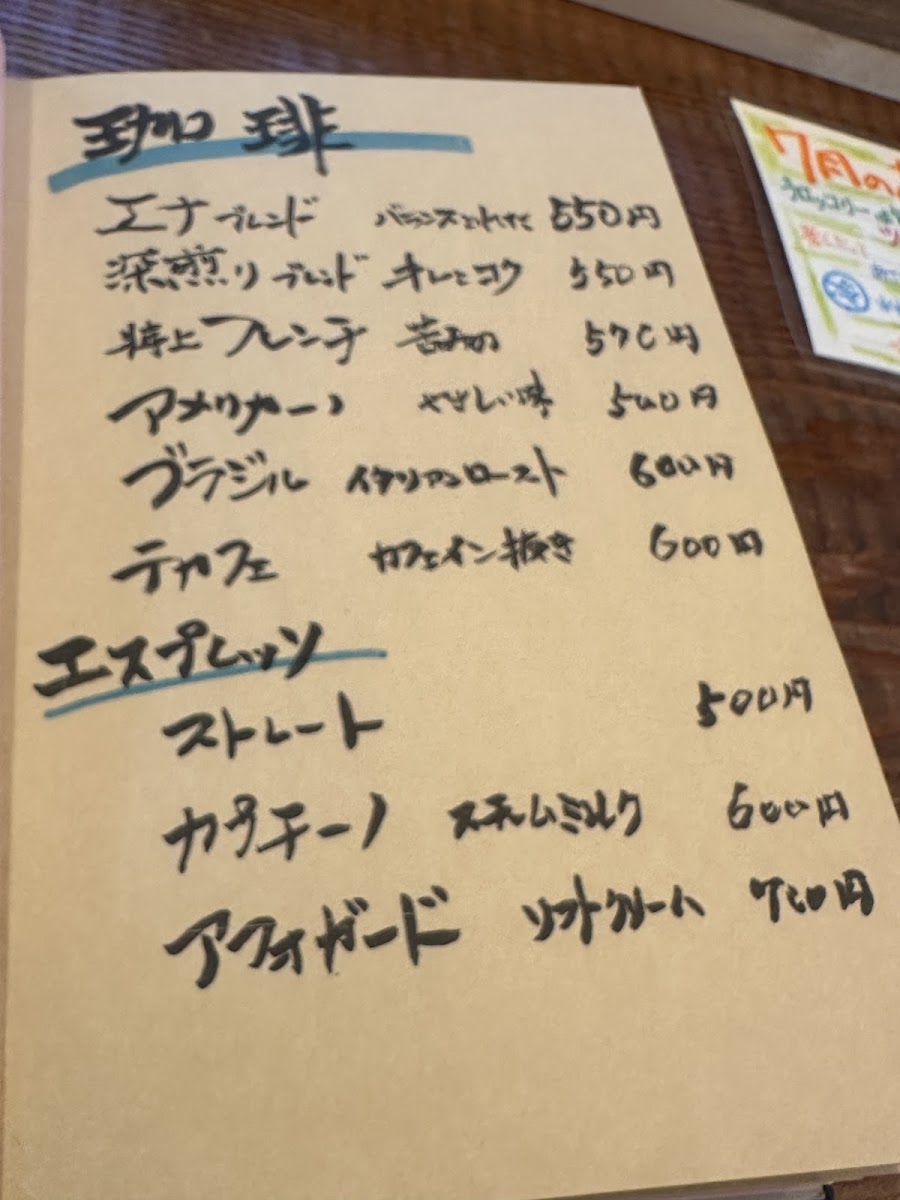 珈琲
エナブレンド バランスとれてて 550円
深煎りブレンド キレとコク 550円
特上フレンチ 苦みの 570円
アメリカーノ やさしい味 500円
ブラジル イタリアンロースト 600円
デカフェ カフェイン抜き 600円
エスプレッソ
ストレート 500円
カプチーノ スチームミルク 600円
アフォガード ソフトクリーム 700円
7月の